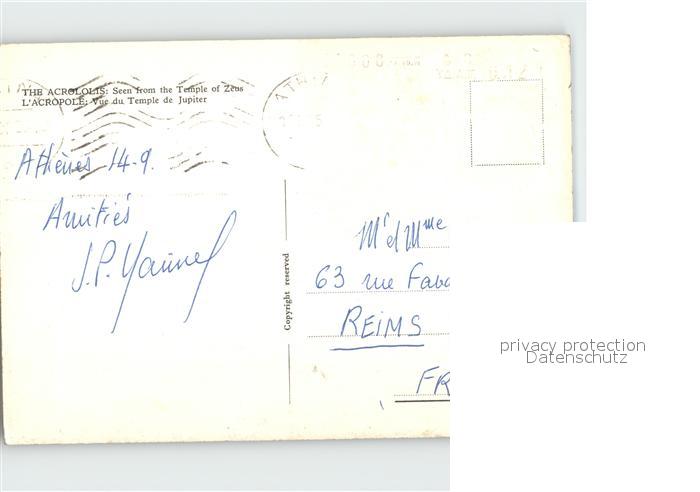 THE ACROLOLIS: Seen from the Temple of Zeus
L'ACROPOLE: Vue du Temple de Jupiter
Athènes 14-9.
Amitiés
J.P.
Copyright reserved
Mr et Mme
63 rue
REIMS
privacy protection
Datenschutz